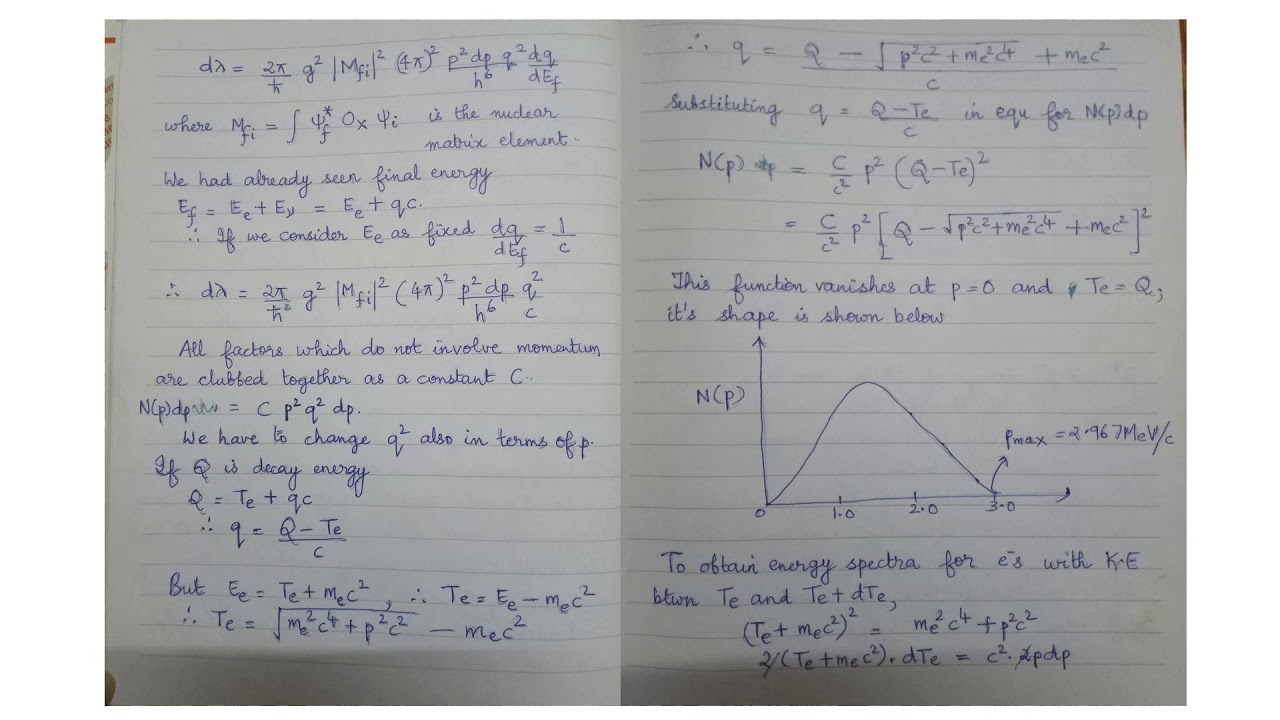 dλ = 2π/ħ g² |Mfi|² (4π)² p²dp q²/h⁶ dq/dEf
where Mfi = ∫ ψf* Ox ψi is the nuclear
matrix element.
We had already seen final energy
Ef = Ee + Eν = Ee + qc.
∴ If we consider Ee as fixed dq/dEf = 1/c
∴ dλ = 2π/ħ² g² |Mfi|² (4π)² p²dp/h⁶ q²/c
All factors which do not involve momentum
are clubbed together as a constant C.
N(p)dp = C p² q² dp.
We have to change q² also in terms of p.
If Q is decay energy
Q = Te + qc
∴ q = Q − Te/c
But Ee = Te + mec², ∴ Te = Ee − mec²
∴ Te = √me²c⁴ + p²c² − mec²
∴ q = Q − √p²c² + me²c⁴ + mec²/c
Substituting q = Q − Te/c in equ for N(p)dp
N(p) = C/c² p² (Q − Te)²
= C/c² p² [Q − √p²c² + me²c⁴ + mec²]²
This function vanishes at p = 0 and Te = Q;
it's shape is shown below
N(p)
pmax = 2.967 MeV/c
0 1.0 2.0 3.0
To obtain energy spectra for e⁻s with K.E
btwn Te and Te + dTe,
(Te + mec²)² = me²c⁴ + p²c²
2(Te + mec²). dTe = c². 2pdp